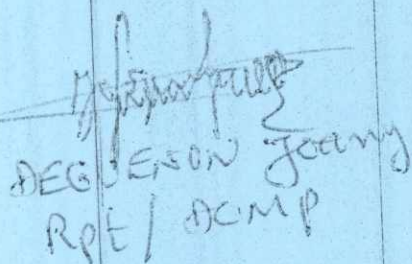 DEGUENON Jeany
Rpt / DCMP